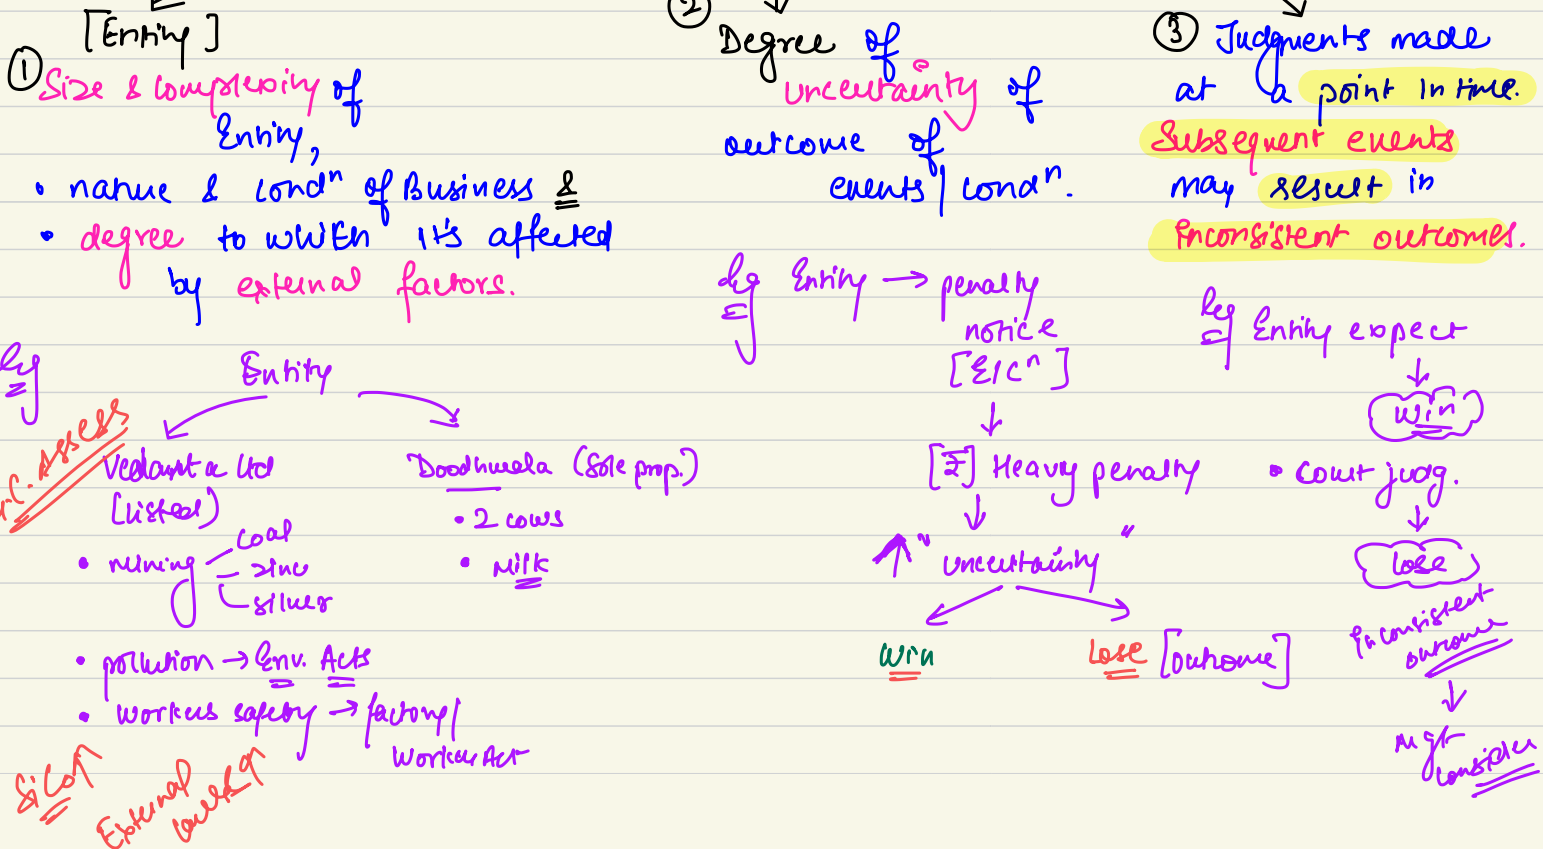 [Entity]
① Size & Complexity of
Entity,
• nature & condⁿ of Business &
• degree to which it's affected
by external factors.
Eg
Entity
Vedanta Ltd
(Listed)
• mining
coal
zinc
silver
• pollution → Env. Acts
• workers safety → factory/
Worker Act
Assess
External
Doodhwala (Sole prop.)
• 2 cows
• Milk
② Degree of
uncertainty of
outcome of
events / condⁿ.
Eg Entity → penalty
notice
[E/Cⁿ]
[₹] Heavy penalty
↑ " uncertainty "
Win
Lose [Outcome]
③ Judgments made
at a point in time.
Subsequent events
may result in
Inconsistent outcomes.
Eg Entity expect
Win
• Court judg.
Lose
Inconsistent
outcome
Mgt
consider